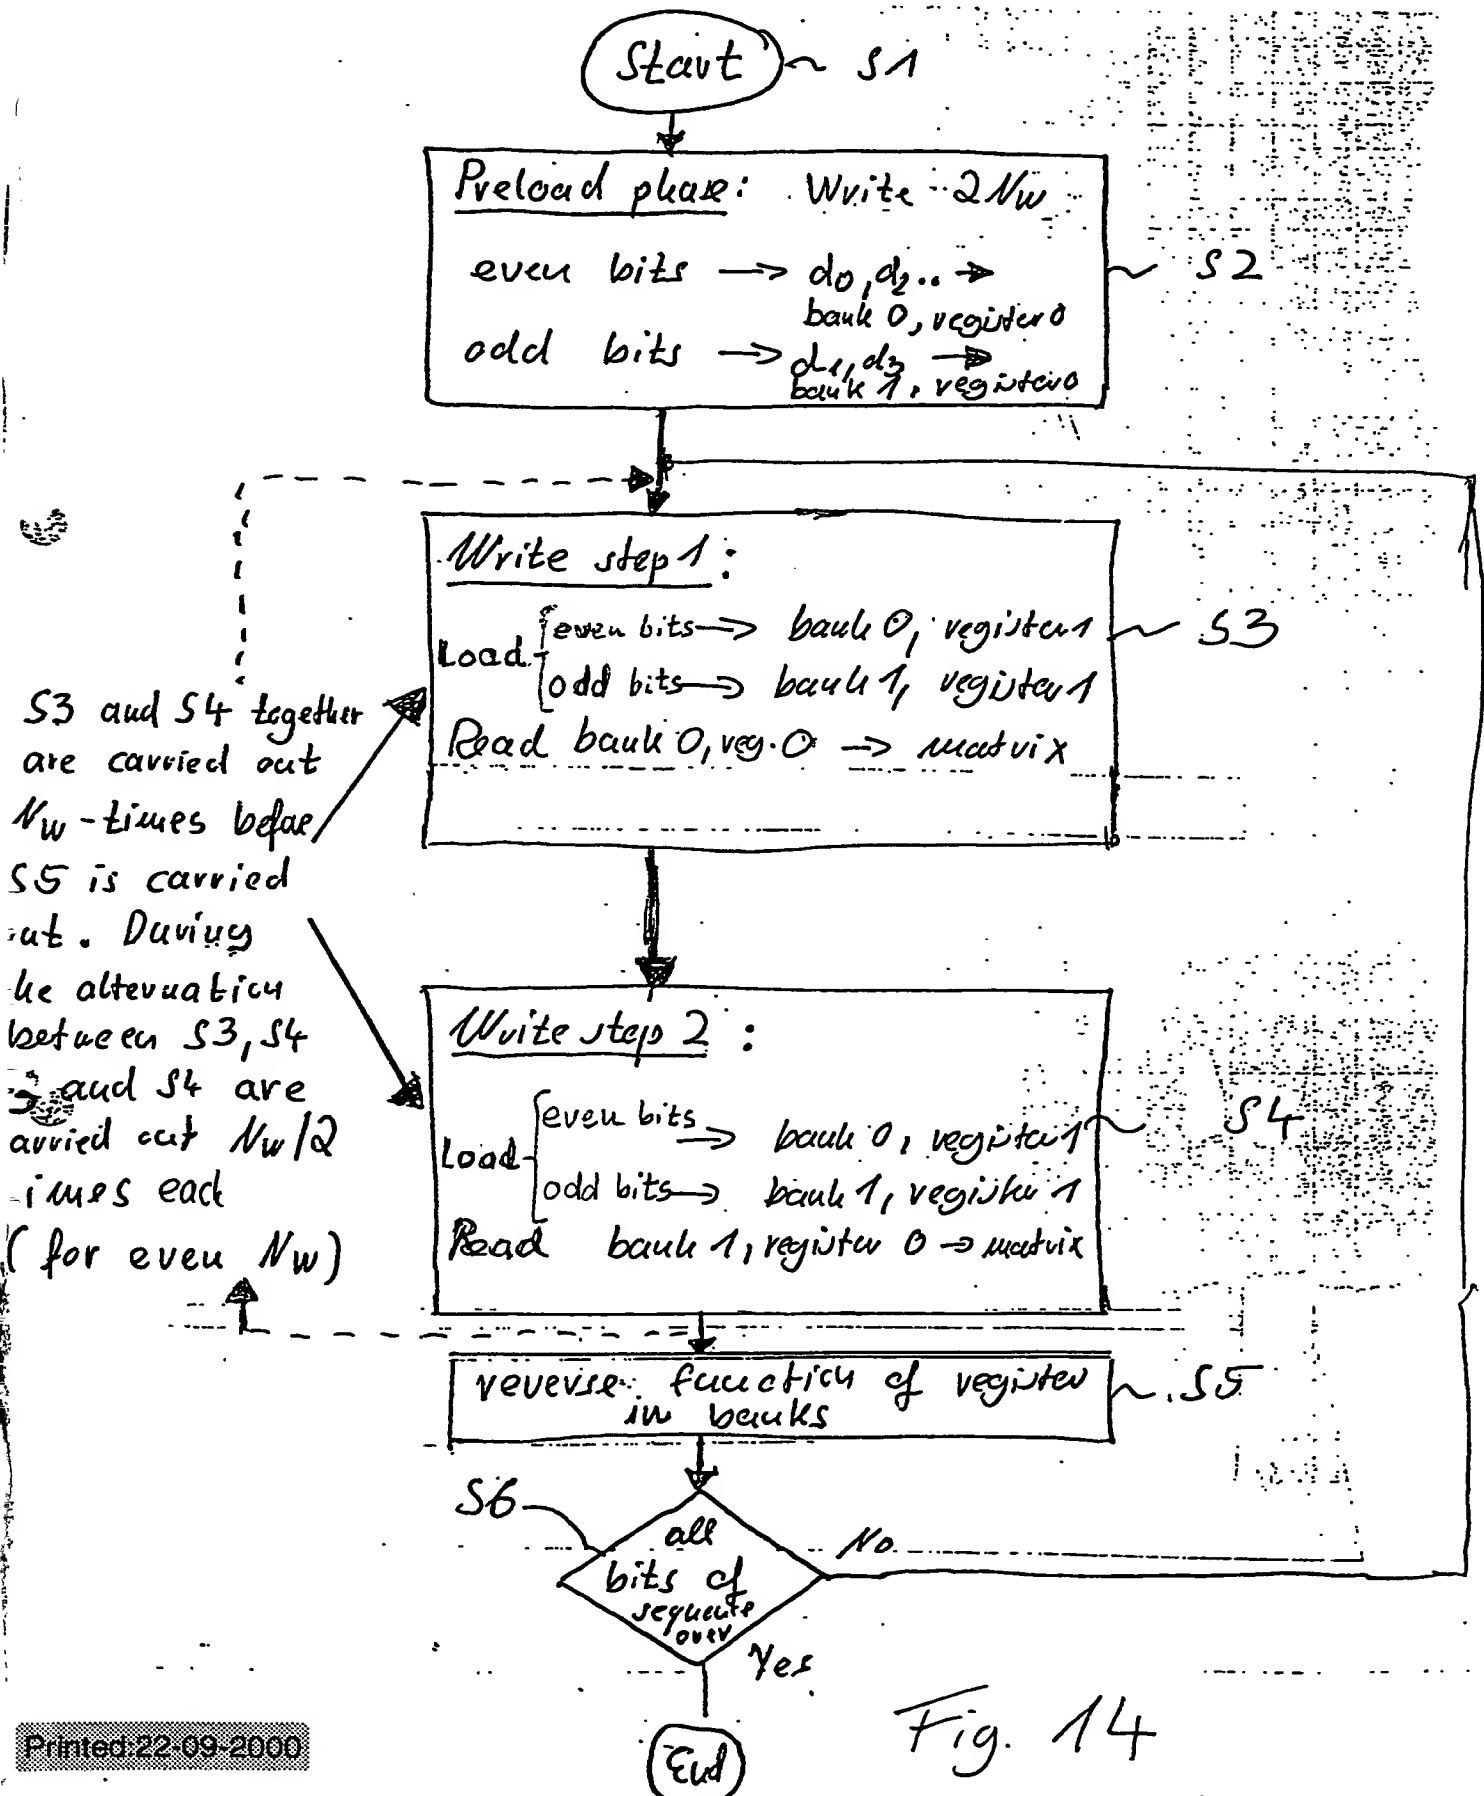 Start S1
Preload phase: Write 2Nw
even bits → d0, d2.. → S2
bank 0, register 0
odd bits → d1, d3 →
bank 1, register 0
Write step 1:
even bits → bank 0, register 1 S3
Load
odd bits → bank 1, register 1
Read bank 0, reg. 0 → matrix
S3 and S4 together
are carried out
Nw-times before
S5 is carried
ut. During
he alternation
between S3, S4
and S4 are
arried out Nw/2
imes each
(for even Nw)
Write step 2:
even bits → bank 0, register 1 S4
Load
odd bits → bank 1, register 1
Read bank 1, register 0 → matrix
reverse function of register S5
in banks
S6
all
bits of
sequence
over
No
Yes
End
Fig. 14
Printed:22-09-2000